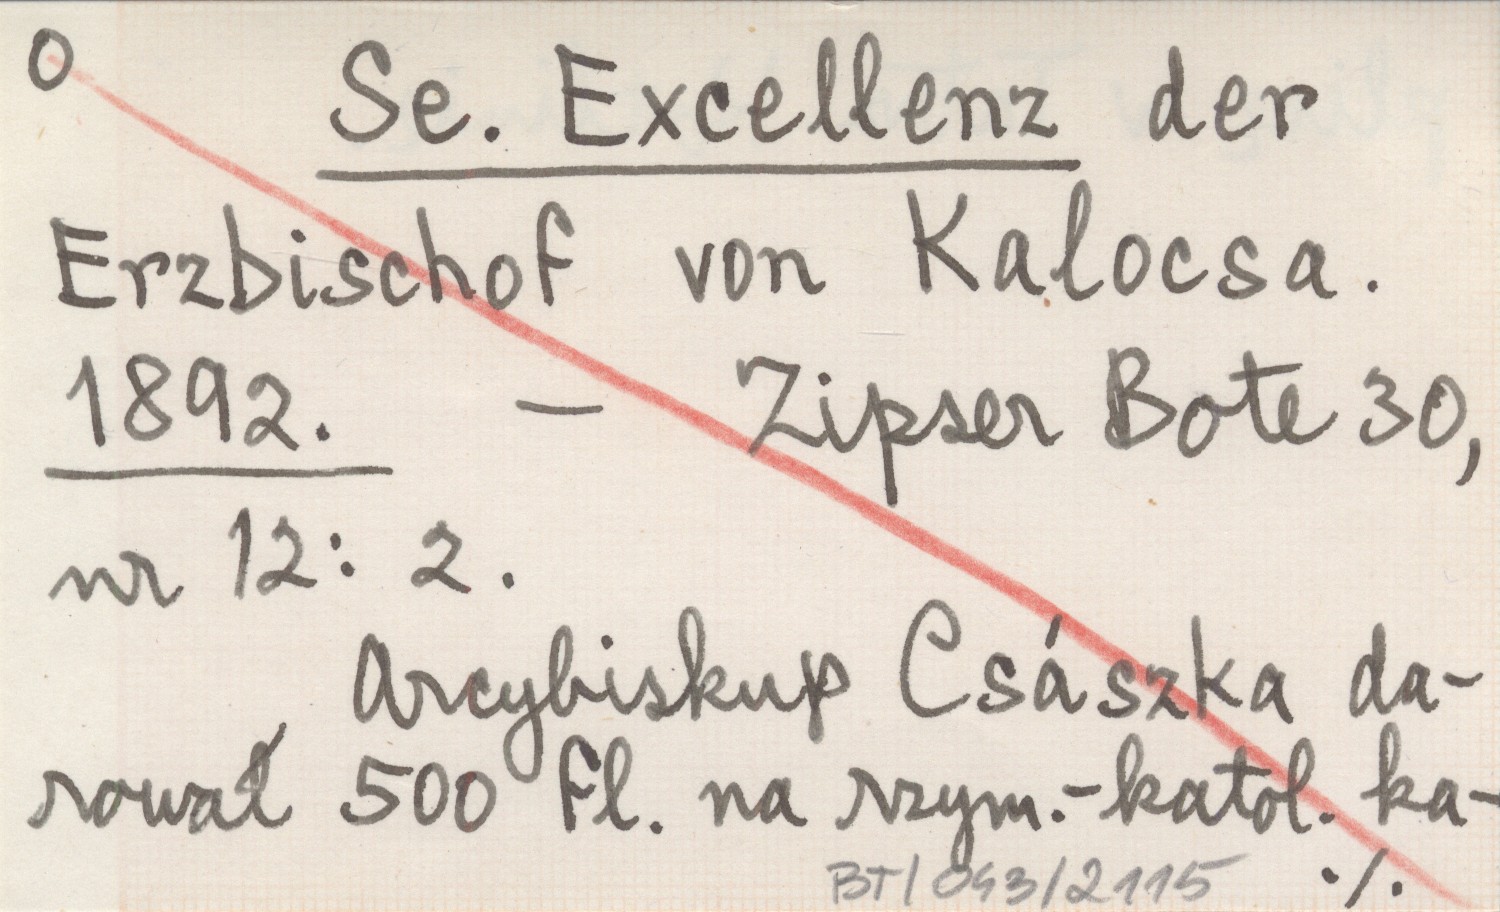 O
Se. Excellenz der
Erzbischof von Kalocsa.
1892. — Zipser Bote 30,
nr 12: 2.
Arcybiskup Császka da-
rował 500 Fl. na rzym.-katol. ka-
./.
BT/043/2115